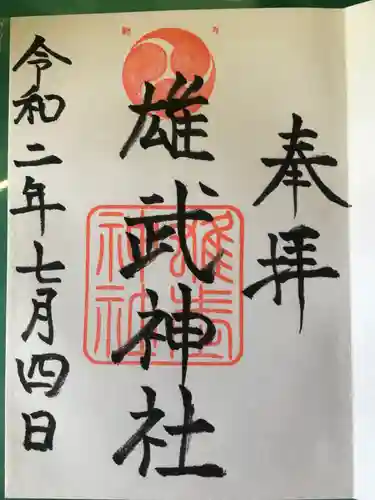 奉拝
雄武神社
雄武
神社
令和二年七月四日